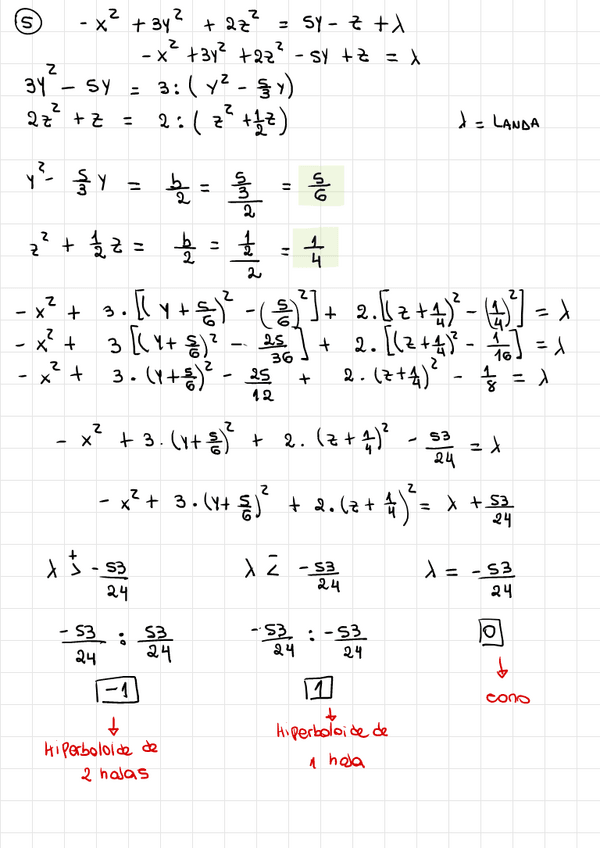 ⑤ - x² + 3y² + 2z² = 5y - z + λ
- x² + 3y² + 2z² - 5y + z = λ
3y² - 5y = 3:( y² - 5/3 y)
2z² + z = 2:( z² + 1/2 z)
λ = LANDA
y² - 5/3 y = b/2 = 5/3/2 = 5/6
z² + 1/2 z = b/2 = 1/2/2 = 1/4
- x² + 3·[(y + 5/6)² - (5/6)²] + 2·[(z + 1/4)² - (1/4)²] = λ
- x² + 3[(y + 5/6)² - 25/36] + 2·[(z + 1/4)² - 1/16] = λ
- x² + 3·(y + 5/6)² - 25/12 + 2·(z + 1/4)² - 1/8 = λ
- x² + 3·(y + 5/6)² + 2·(z + 1/4)² - 53/24 = λ
- x² + 3·(y + 5/6)² + 2·(z + 1/4)² = λ + 53/24
+ - 
λ > -53/24 λ < -53/24 λ = -53/24
-53/24 : 53/24 -53/24 : -53/24 0
-1 1 cono
Hiperboloide de Hiperboloide de
2 hojas 1 hoja